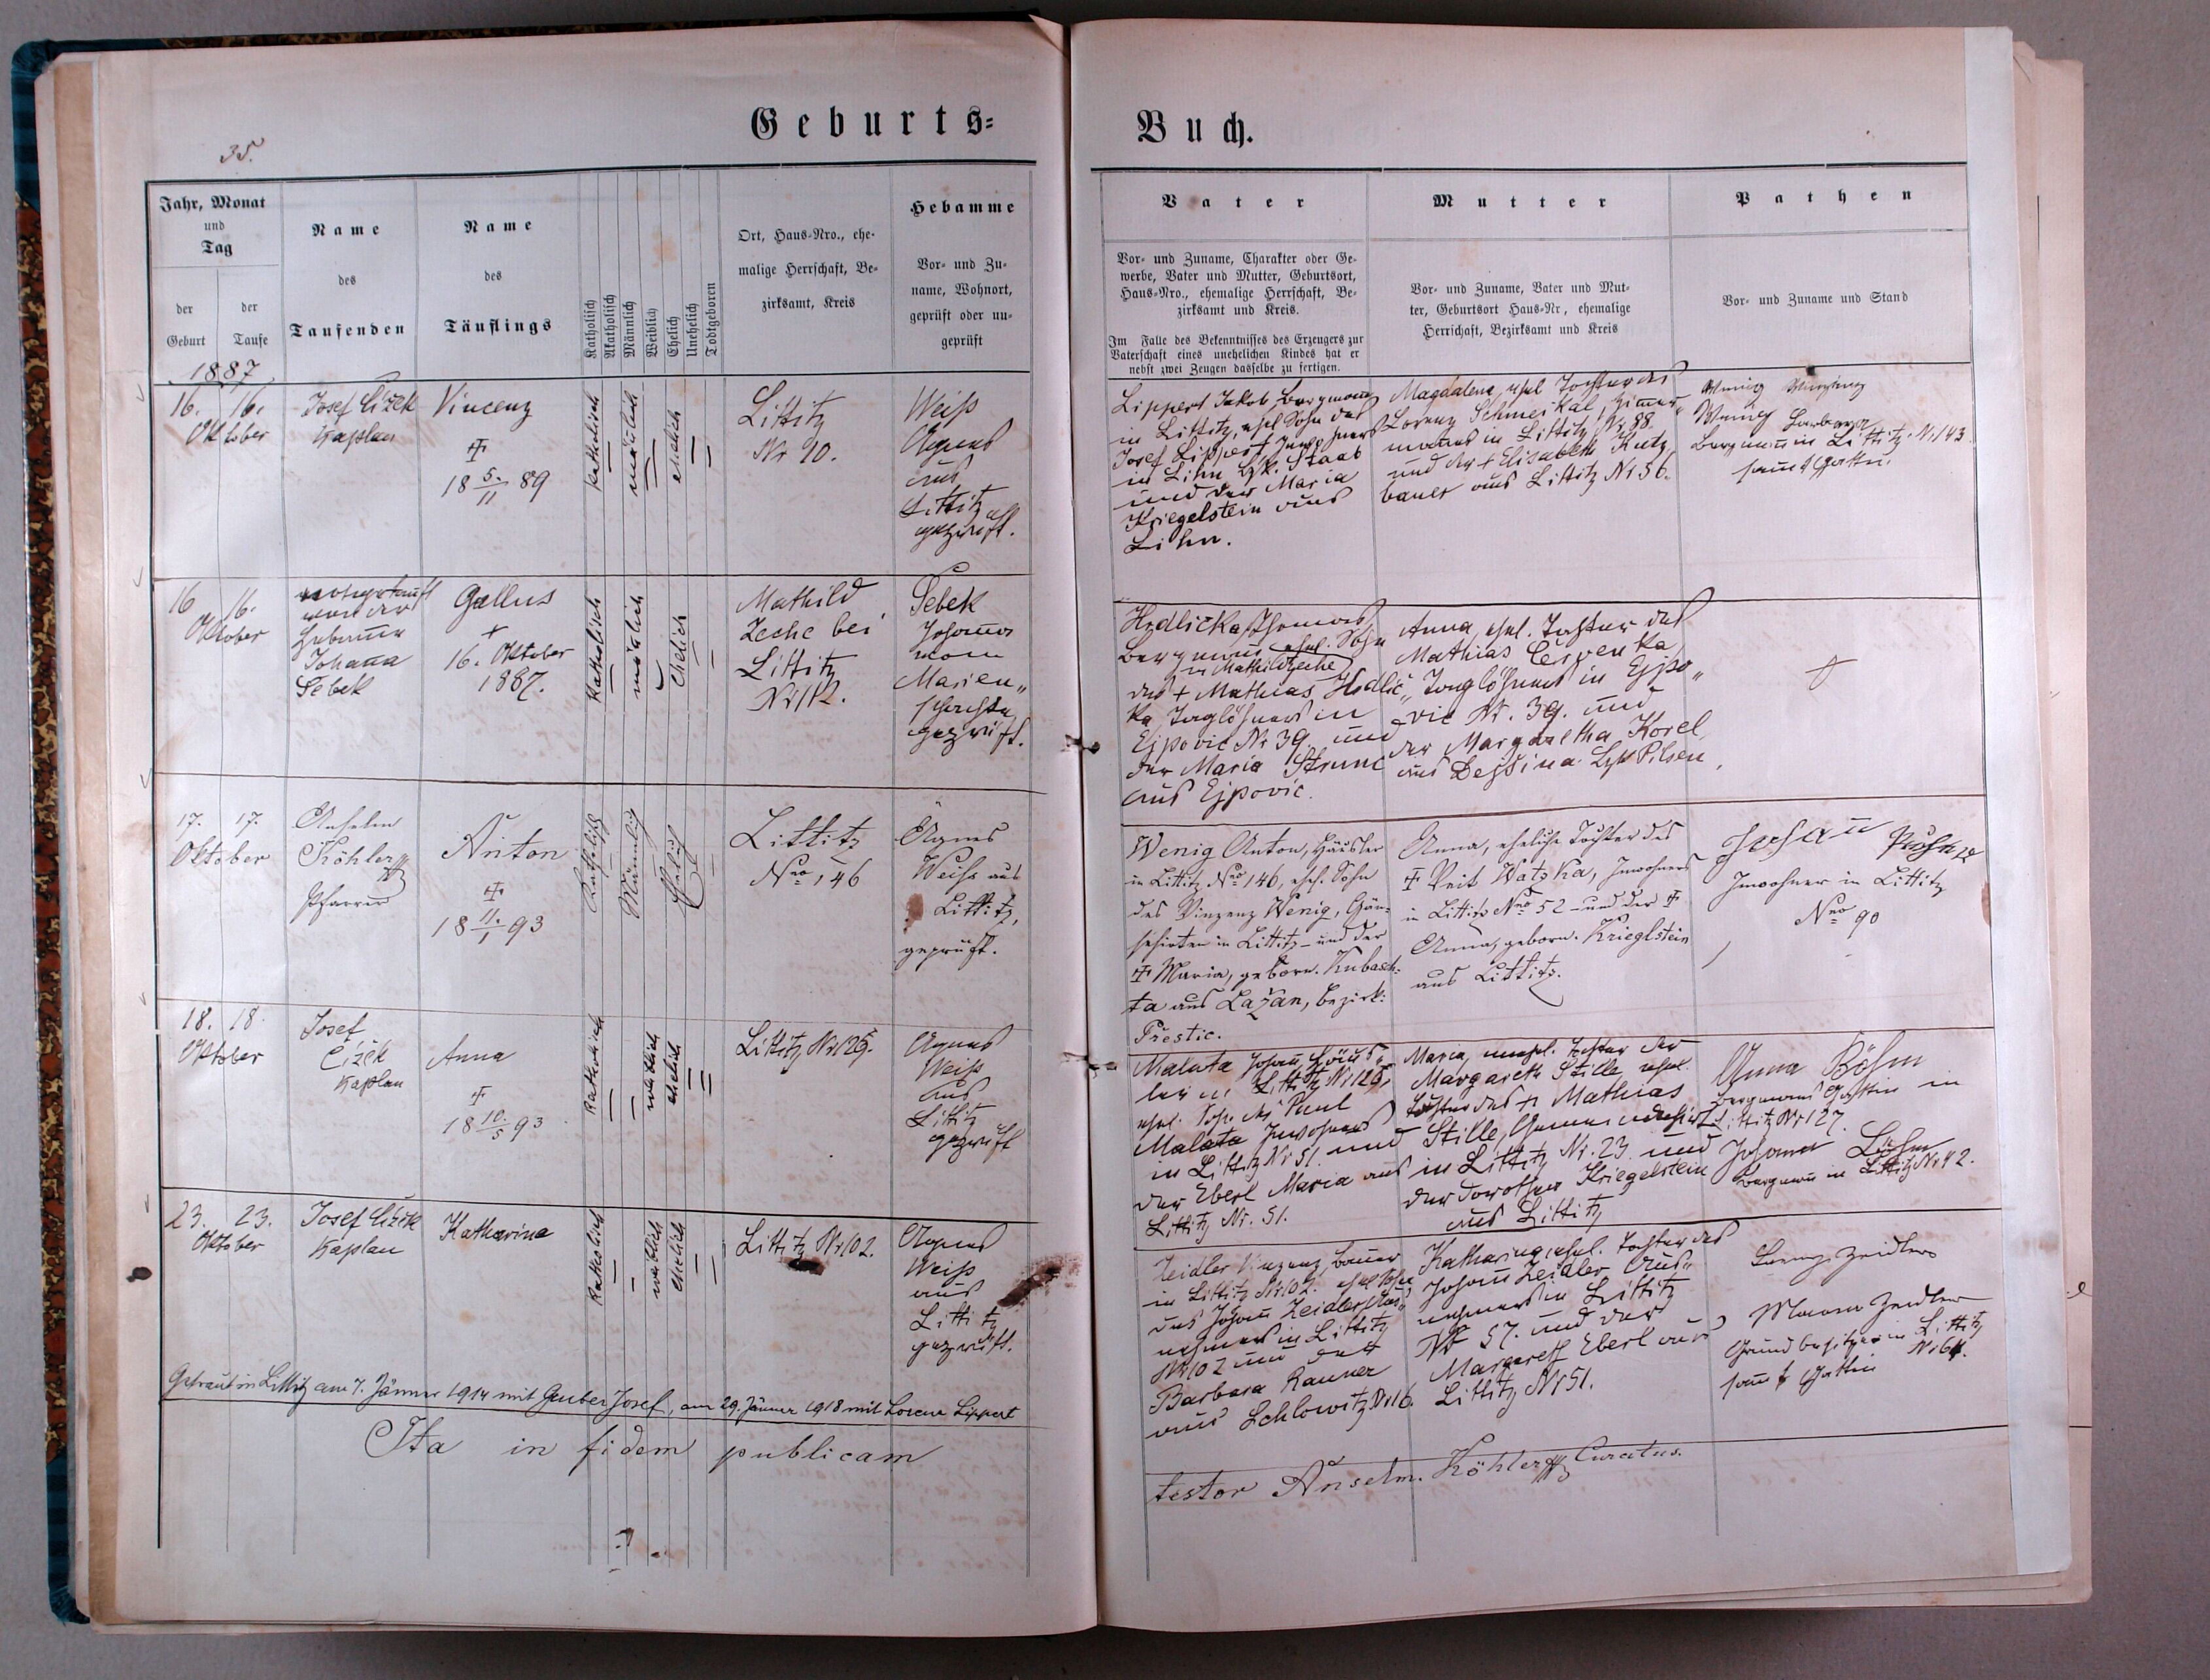 35.
Geburts=
Buch.
Jahr, Monat
und
Tag
der Geburt
der Taufe
Name
des
Taufenden
Name
des
Täuflings
Katholisch
Akatholisch
Männlich
Weiblich
Ehelich
Unehelich
Todtgeboren
Ort, Haus-Nro., ehe-
malige Herrschaft, Be-
zirksamt, Kreis
Hebamme
Vor- und Zu-
name, Wohnort,
geprüft oder un-
geprüft
Vater
Vor- und Zuname, Charakter oder Ge-
werbe, Vater und Mutter, Geburtsort,
Haus-Nro., ehemalige Herrschaft, Be-
zirksamt und Kreis.
Im Falle des Bekenntnisses des Erzeugers zur
Vaterschaft eines unehelichen Kindes hat er
nebst zwei Zeugen dasselbe zu fertigen.
Mutter
Vor- und Zuname, Vater und Mut-
ter, Geburtsort Haus-Nr, ehemalige
Herrschaft, Bezirksamt und Kreis
Pathen
Vor- und Zuname und Stand
1887
16. 16.
Oktober
Josef Čížek
Kaplan
Vincenz
†
18 5./11 89
katholisch
mänlich
ehelich
Littitz
Nr 90.
Weiß
Agnes
aus
Littitz
geprüft.
Lippert Jakob Bergmann
in Littitz, ehel Sohn des
Josef Lippert, Inwohners
in Lihn Bzk. Staab
und der Maria
Kriegelstein aus
Lihn.
Magdalena, ehel Tochter des
Lorenz Schmeikal, Zimer„
manes in Littitz Nr. 88
und der † Elisabeth Kutz„
bauer aus Littitz Nr 56.
Wenig
Wenig Barbara
Bergmann in Littitz Nr 143
samt Gattin.
16 16.
Oktober
nothgetauft
von der
Hebame
Johana
Šebek
Gallus
†
16. Oktober
1887.
Katholisch
mänlich
Ehelich
Mathild
Zeche bei
Littitz
Nr 112.
Šebek
Johana
vom
Marien„
schachte
geprüft.
Hrdlička Thomas
Bergmann ehel. Sohn
in Mathildzeche
des † Mathias Hrdlič„
ka Taglöhners in
Ejpovic Nr 39 und
der Maria Strunc
aus Ejpovic.
Anna, ehel. Tochter des
Mathias Červenka
Taglöhners in Ejpo„
vic Nr. 39. und
der Margaretha Korel
aus Dejšina Bzk Pilsen.
†
17. 17.
Oktober
Anselm
Köhler
Pfarrer
Anton
†
18 11./1 93
Katholisch
Männlich
Ehelich
Littitz
Nro 146
Agnes
Weiss aus
Littitz,
geprüft.
Wenig Anton, Häusler
in Littitz Nro 146, ehel. Sohn
des Vinzenz Wenig, Gän-
sehirten in Littitz und der
† Maria, geborn. Kubasch-
ta aus Lažan, Bezirk:
Přestic.
Anna, eheliche Tochter des
† Veit Watzka, Inwohners
in Littitz Nro 52 und der †
Anna, geborn. Krieglstein
aus Littitz.
Johann
Inwohner in Littitz
Nro 90
18. 18.
Oktober
Josef
Čížek
Kaplan
Anna
†
18 10./5 93
katholisch
weiblich
ehelich
Littitz Nr 125.
Agnes
Weiß
aus
Littitz
geprüft
Malata Johan Häus„
ler in Littitz Nr 125,
ehel. Sohn des Paul
Malata Inwohners
in Littitz Nr 51. und
der Eberl Maria aus
Littitz Nr. 51.
Maria, unehel. Tochter der
Margareth Stille ehel.
Tochter des † Mathias
Stille, Gemeindehirt
in Littitz Nr. 23 und
der Dorothea Kriegelstein
aus Littitz
Anna Böhm
Bergmans Gattin in
Littitz Nr 127.
Johann Böhm
Bergman in Littitz Nr 42.
23. 23.
Oktober
Josef Čížek
Kaplan
Katharina
Katholisch
weiblich
ehelich
Littitz Nr 102.
Agnes
Weiß
aus
Littitz
geprüft.
Zeidler Vinzenz, Bauer
in Littitz Nr 102. ehel Sohn
des Johann Zeidler Aus„
nehmers in Littitz
Nr 102 und der
Barbara Rauner
aus Schlowitz Nr 16.
Katharina, ehel. Tochter des
Johann Zeidler Aus„
nehmers in Littitz
Nr 57. und der
Margareth Eberl aus
Littitz Nr 51.
Lorenz Zeidler
Zeidler
Grundbesitzer in Littitz
Nr 64.
samt Gattin
Getraut in Littitz am 7. Jänner 1914 mit Gruber Josef, am 29. Jänner 1918 mit Lorenz Lippert
Ita in fidem publicam
testor Anselm. Köhler Curatus.